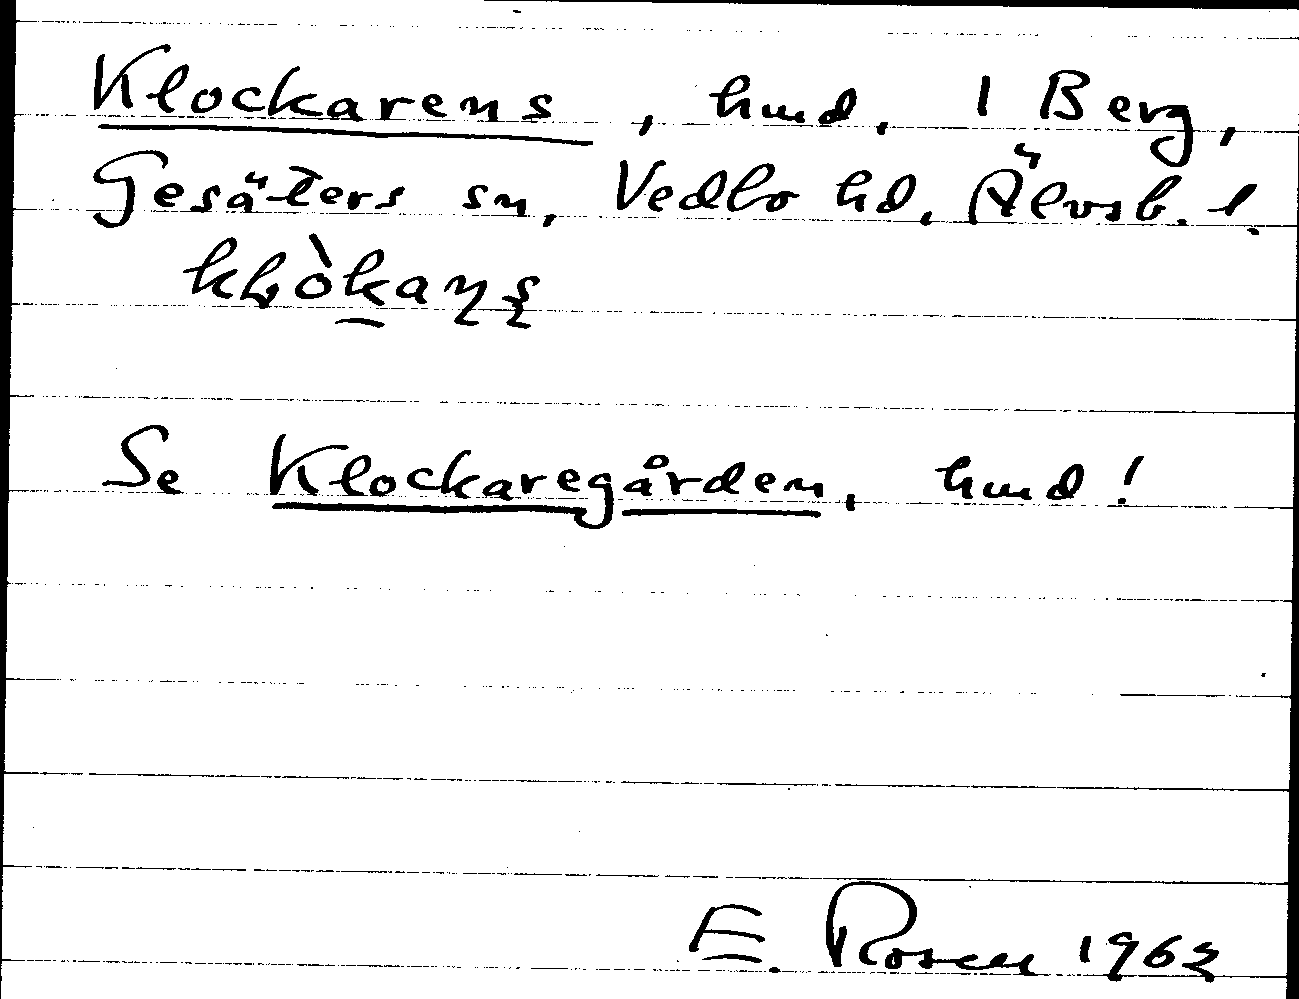 Klockarens, hmd. 1 Berg,
Gesäters sn, Vedbo hd. Älvsb. l.
Se Klockaregården, hmd!
E. Rosen 1963